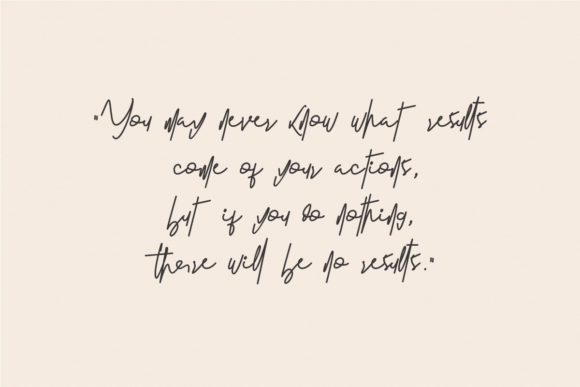 "You may never know what results
come of your actions,
but if you do nothing,
there will be no results."